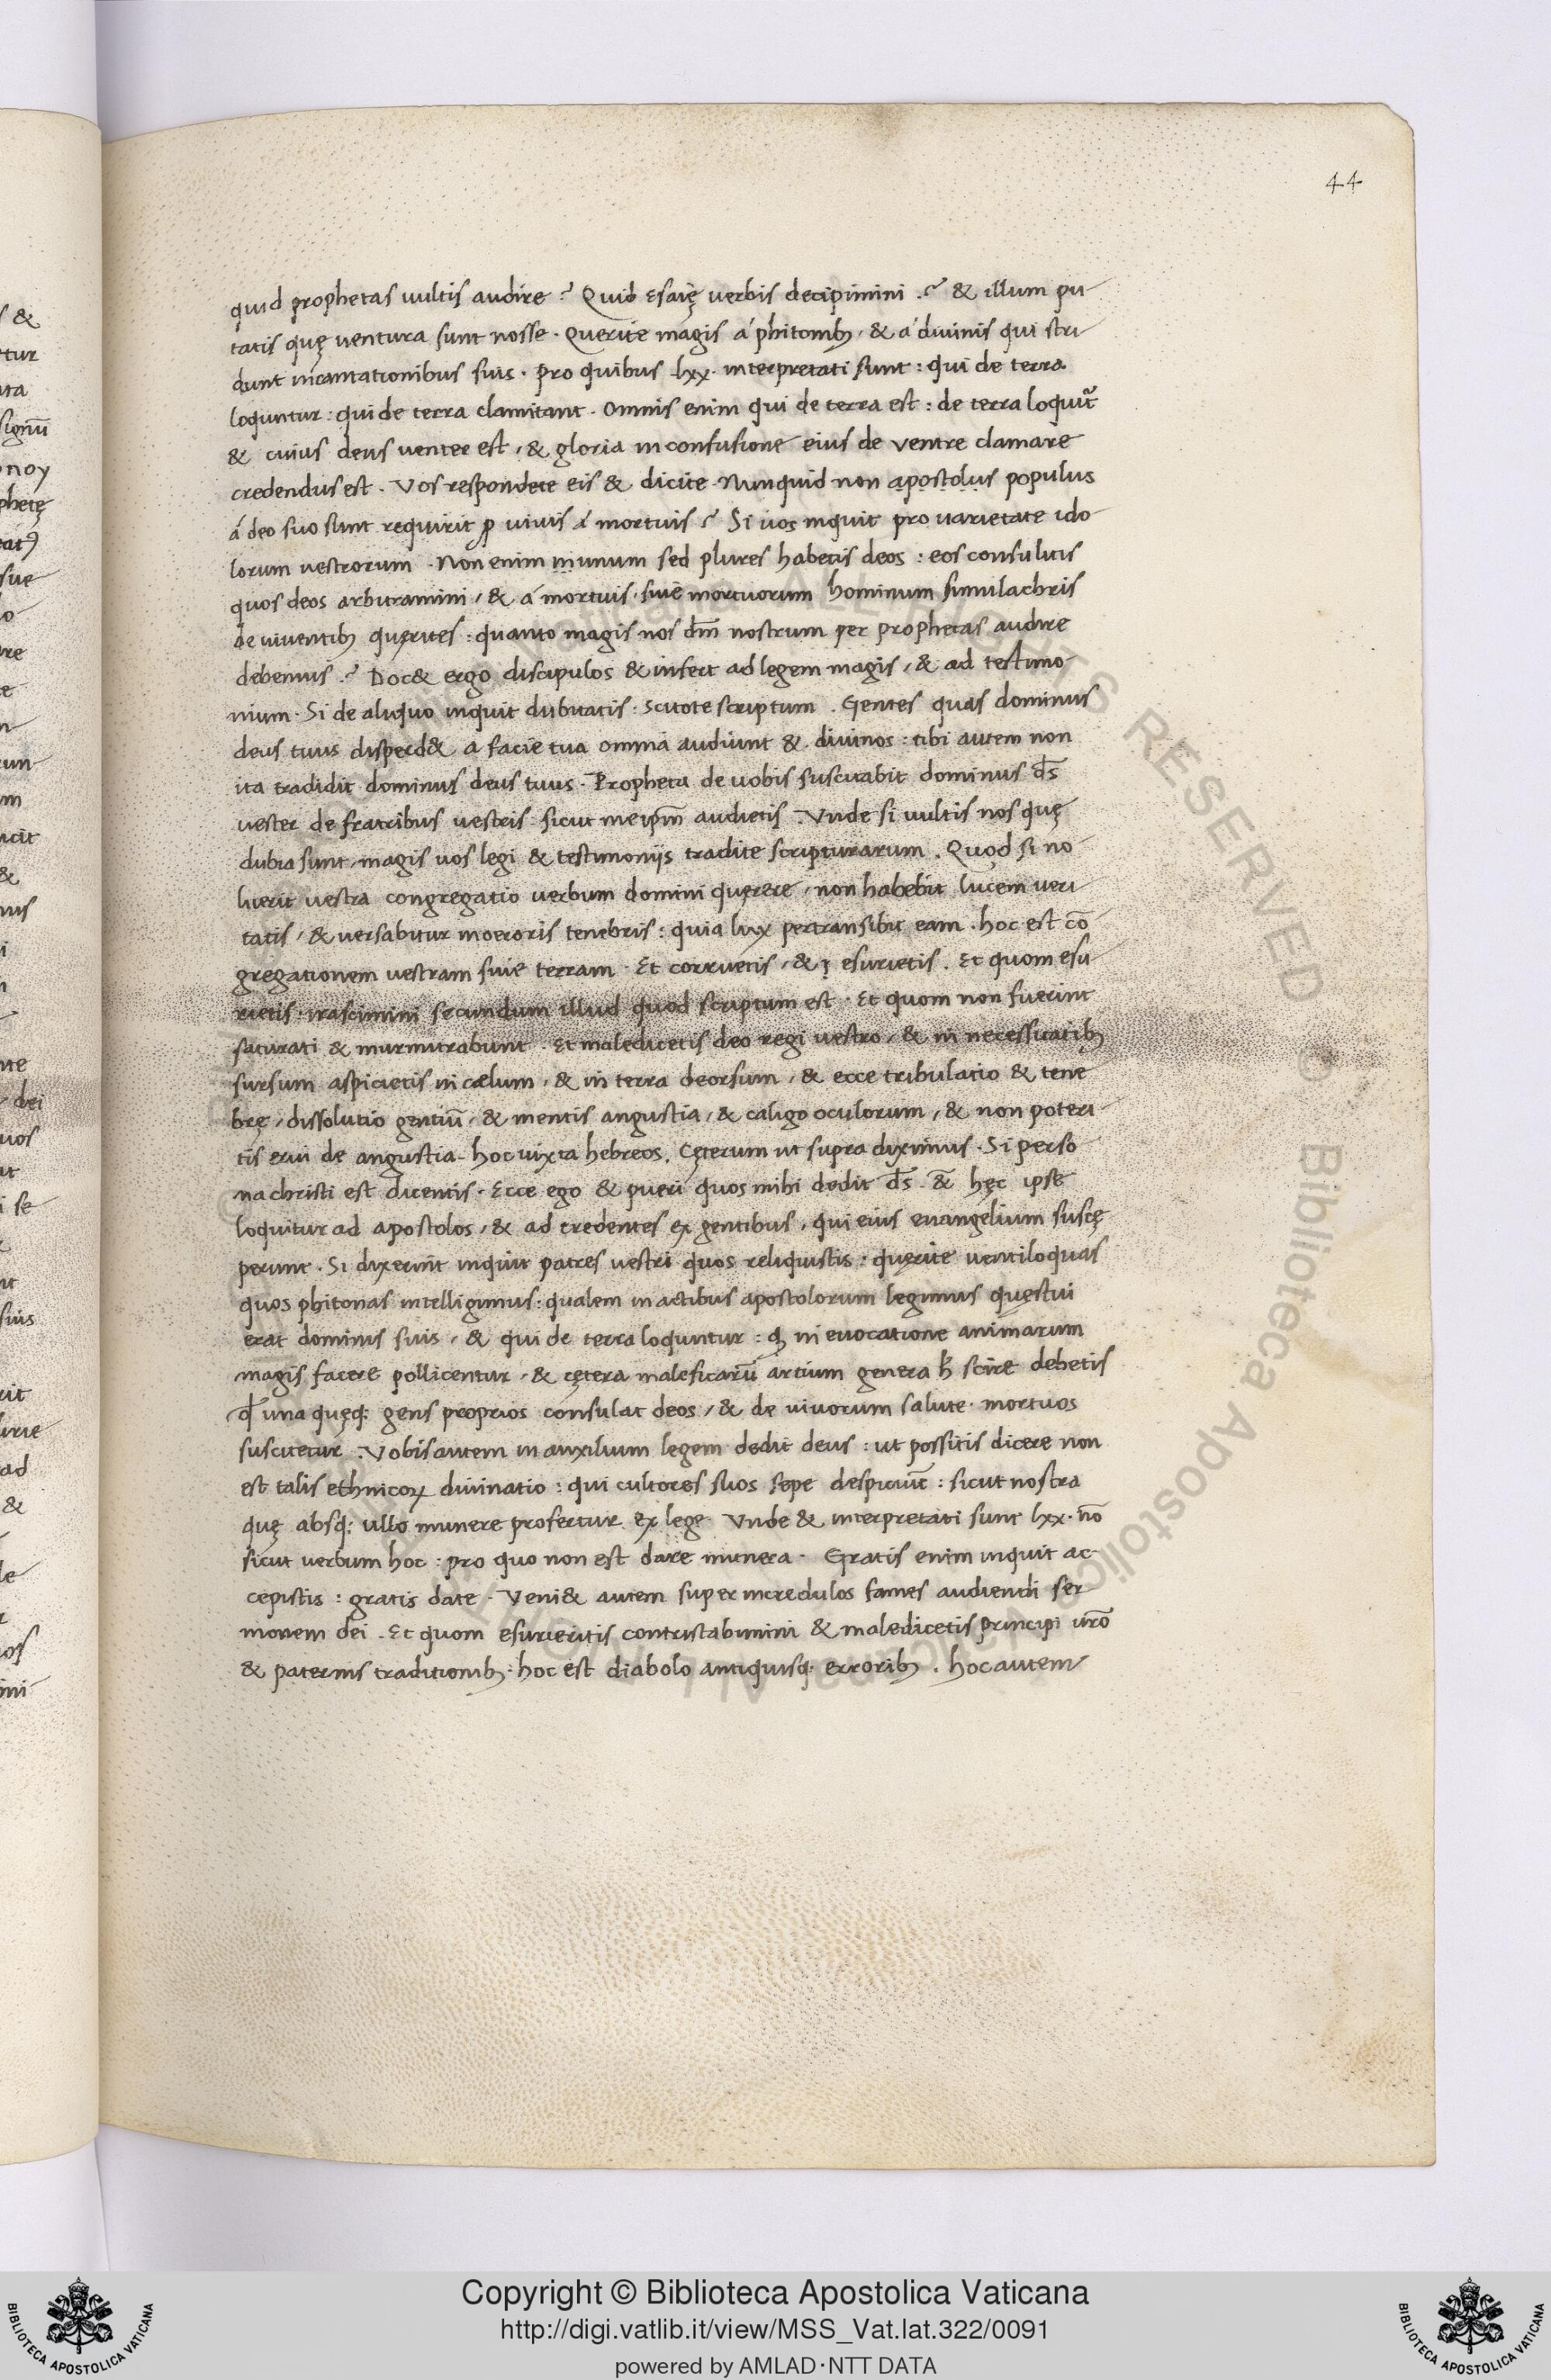 44
quid prophetas uultis audire? Quid Esaię verbis decipimini.? & illum pu
tatis quę ventura sunt nosse. Querite magis á phitonibꝫ, & á diuinis qui stri
dunt incantationibus suis. pro quibus lxx. interpretati sunt: qui de terra
loquntur: qui de terra clamitant. Omnis enim qui de terra est: de terra loquit̃
& cuius deus venter est, & gloria in confusione eius de ventre clamare
credendus est. Vos respondete eis & dicite. Nunquid non apostolus populus
á deo suo sunt requirit ꝓ uiuis á mortuis? Si uos inquit pro uarietate ido
lorum vestrorum. Non enim munum sed plures habetis deos: eos consulitis
quos deos arbitramini, & á mortuis. siue mortuorum hominum simulachris
de viuentibꝫ quęrites: quanto magis nos dm̄ nostrum per prophetas audire
debemus.? Doc& ergo discipulos & infert ad legem magis, & ad testimo
nium. Si de aliquo inquit dubitatis: scitote scriptum. Gentes quas dominus
deus tuus disperd& a facie tua omina audiunt & diuinos: tibi autem non
ita tradidit dominus deus tuus. Propheta de uobis suscitabit dominus ds̄
vester de fratribus vestris sicut me ipm̄ audietis. Vnde si uultis nos quę
dubia sunt, magis uos legi & testimonijs tradite scripturarum. Quod si no
luerit vestra congregatio verbum domini quęrere, non habebit lucem veri
tatis, & versabitur moeroris tenebris: quia lux pertransibit eam. hoc est cō
gregationem vestram siue terram. Et corruetis, & esurietis. Et quom esu
rietis. irascimini secundum illud quod scriptum est. Et quom non fuerint
saturati & murmurabunt. Et maledicetis deo regi vestro, & in necessitatibꝫ
sursum aspicietis in cælum, & in terra deorsum, & ecce tribulatio & tene
brę, dissolutio gentiū, & mentis angustia, & caligo oculorum, & non poteri
tis erui de angustia. hoc iuxta hebreos. Cęterum ut supra diximus. Si perso
na christi est dicentis. Ecce ego & pueri quos mihi dedit ds̄ & hęc ipse
loquitur ad apostolos, & ad credentes ex gentibus, qui eius euangelium suscę
perunt. Si dixerint inquit patres vestri quos reliquistis: quęrite ventiloquas
quos phitonas intelligimus: qualem in actibus apostolorum legimus quęstui
erat dominis suis, & qui de terra loquntur: qꝫ in euocatione animarum
magis facere pollicentur, & cętera maleficarū artium genera h̄ scire debetis
qđ una quęqꝫ gens proprios consulat deos, & de viuorum salute. mortuos
suscitetur. Vobis autem in auxilium legem dedit deus: ut possitis dicere non
est talis ethnicoꝝ diuinatio: qui cultores suos sepe despiciūt: sicut nostra
quę absqꝫ ullo munere profertur ex lege Vnde & interpretati sunt lxx. nō
sicut verbum hoc: pro quo non est dare munera. Gratis enim inquit ac
cepistis: gratis date. Veni& autem super incredulos fames audiendi ser
monem dei. Et quom esurieritis contristabimini & maledicetis principi ur̄o
& paternis traditionibꝫ: hoc est diabolo antiquisqꝫ erroribꝫ. hoc autem
Copyright © Biblioteca Apostolica Vaticana
http://digi.vatlib.it/view/MSS_Vat.lat.322/0091
powered by AMLAD·NTT DATA